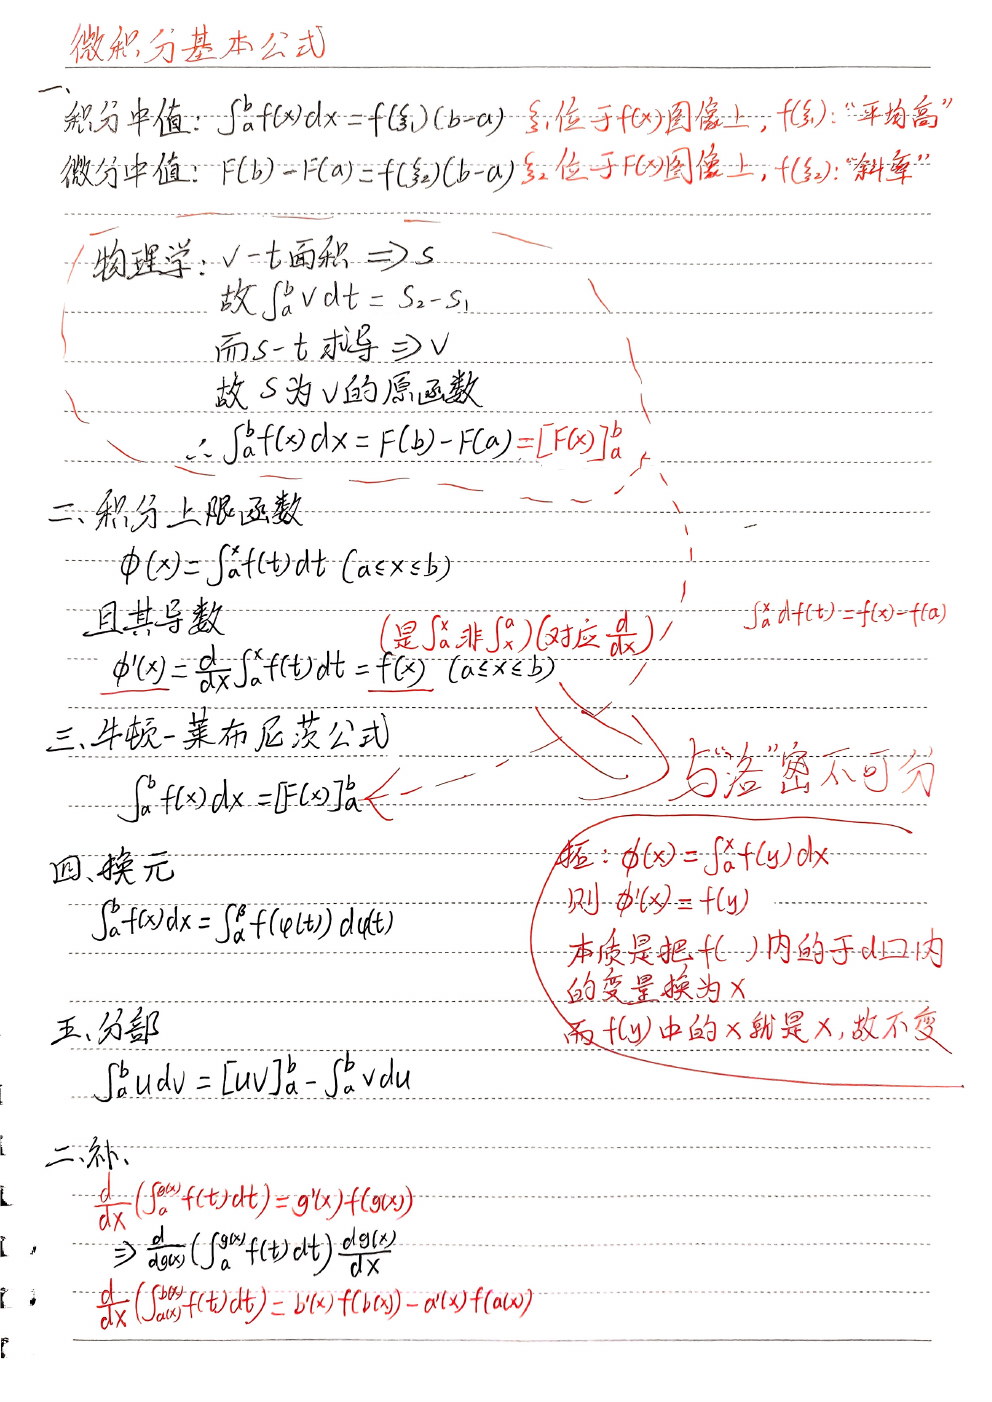 微积分基本公式
一、
积分中值: ∫ₐᵇ f(x)dx = f(ξ₁)(b-a) ξ₁位于f(x)图像上, f(ξ₁): "平均高"
微分中值: F(b)-F(a)=f(ξ₂)(b-a) ξ₂位于F(x)图像上, f(ξ₂): "斜率"
物理学: v-t面积 ⇒ s
故 ∫ₐᵇ v dt = S₂-S₁
而s-t求导 ⇒ v
故 S为v的原函数
∴ ∫ₐᵇ f(x)dx = F(b)-F(a) = [F(x)]ₐᵇ
二、积分上限函数
ϕ(x)=∫ₐˣ f(t)dt (a≤x≤b)
且其导数
(是∫ₐˣ 非∫ₓᵃ)(对应 d/dx)
∫ₐˣ df(t)=f(x)-f(a)
ϕ'(x)= d/dx ∫ₐˣ f(t)dt = f(x) (a≤x≤b)
三、牛顿-莱布尼茨公式
与"洛"密不可分
∫ₐᵇ f(x)dx = [F(x)]ₐᵇ
四、换元
∫ₐᵇ f(x)dx = ∫_α^β f(φ(t)) dφ(t)
: ϕ(x)=∫ₐˣ f(y)dx
则 ϕ'(x)= f(y)
本质是把f( )内的于d口内
的变量换为x
而 f(y)中的x就是x,故不变
五、分部
∫ₐᵇ u dv = [uv]ₐᵇ - ∫ₐᵇ v du
二、补、
d/dx (∫ₐ^g(x) f(t)dt) = g'(x) f(g(x))
⇒ d/dg(x) (∫ₐ^g(x) f(t)dt) dg(x)/dx
d/dx (∫_a(x)^b(x) f(t)dt) = b'(x) f(b(x)) - a'(x) f(a(x))